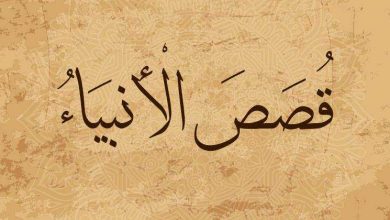 قُصَصَ الْأنبيَاءُ